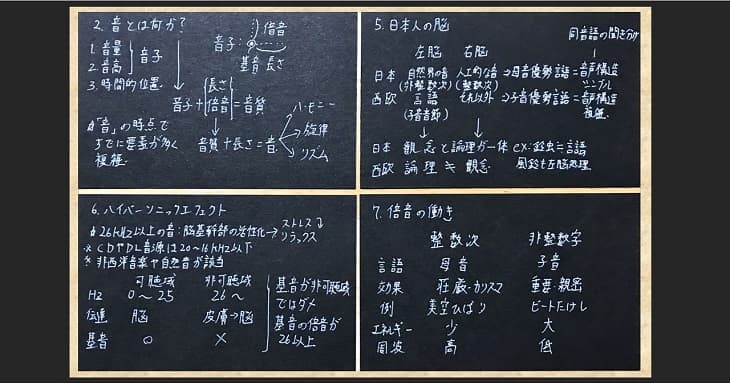 2. 音とは何か?
1. 音量
2. 音高
音子
3. 時間的位置
音子:
倍音
基音 長さ
音子+
長さ
倍音
=音質
#「音」の時点で
すでに要素が多く
複雑
音質+長さ=音
ハーモニー
旋律
リズム
5. 日本人の脳
同音語の聞き分け
左脳 右脳
日本 自然界の音 人工的な音 ⇒母音優勢言語=音声構造
(非整数次) (整数次) シンプル
西欧 言語 それ以外 ⇒子音優勢言語=音声構造
(子音音節) 複雑
日本 観念と論理が一体 ex:鈴虫=言語
西欧 論理≒観念 風鈴も左脳処理
6. ハイパーソニックエフェクト
# 26kHz以上の音:脳基幹部の活性化→ストレス↓
リラックス
※ CDやDL音源は20~16kHz以下
※ 非西洋音楽や自然音が該当
可聴域 非可聴域
Hz 0~25 26~
伝達 脳 皮膚→脳
基音 ○ ×
基音が非可聴域
ではダメ
基音の倍音が
26以上
7. 倍音の働き
整数次 非整数字
言語 母音 子音
効果 荘厳・カリスマ 重要・親密
例 美空ひばり ビートたけし
エネルギー 少 大
周波 高 低